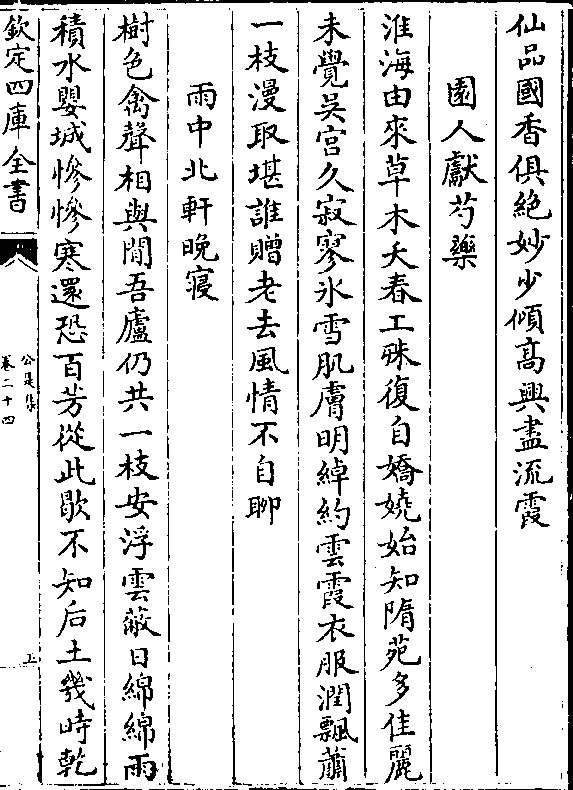 仙品國香俱絶妙少傾髙興盡流霞
園人獻芍藥
淮海由來草木夭春工殊復自嬌嬈始知隋苑多佳麗
未覺吳宫久寂寥氷雪肌膚明綽約雲霞衣服潤飄蕭
一枝漫取堪誰贈老去風情不自聊
雨中北軒晚寢
樹色禽聲相與閒吾廬仍共一枝安浮雲蔽日綿綿雨
積水嬰城慘慘寒還恐百芳從此歇不知后土幾時乾
欽定四庫全書
公是集
卷二十四
五